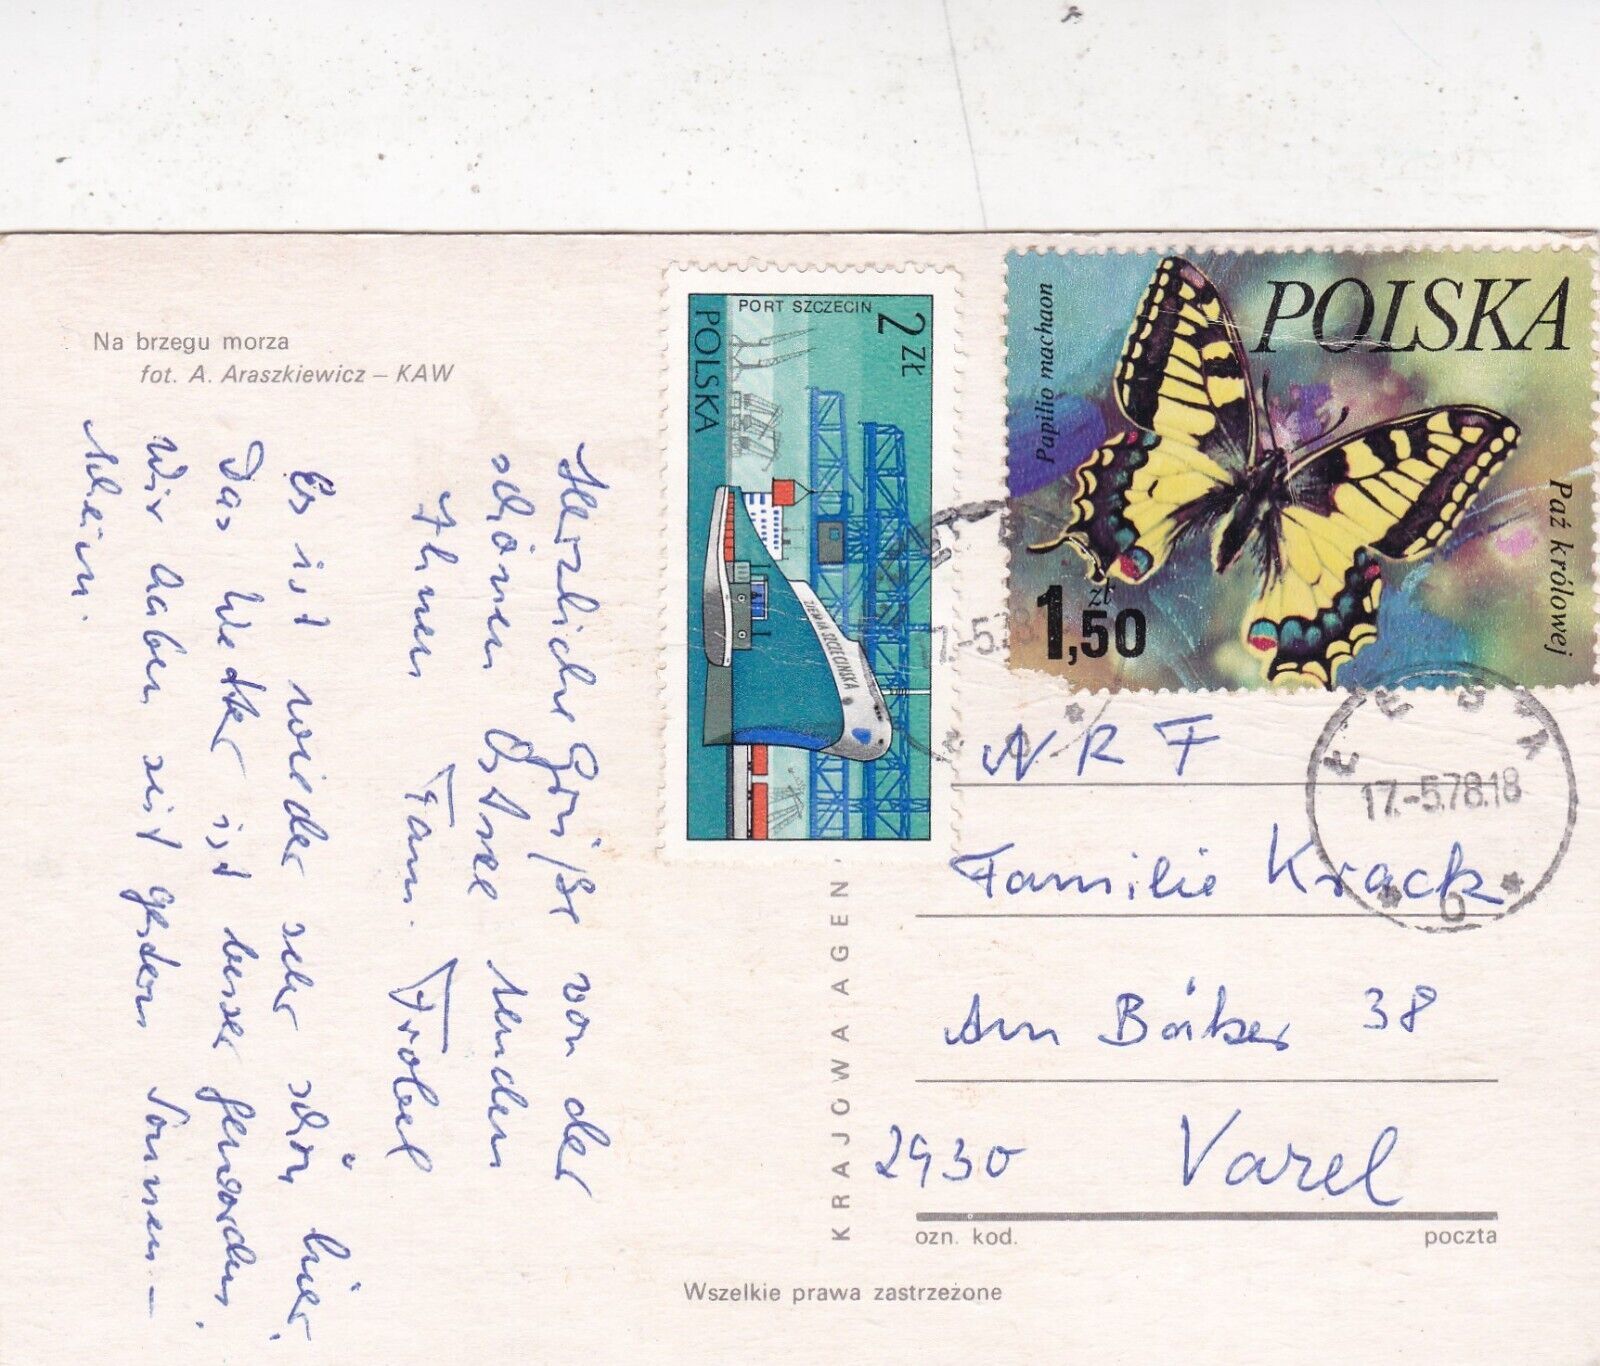 Na brzegu morza
fot. A. Araszkiewicz – KAW
PORT SZCZECIN
POLSKA
2 ZŁ
ZIEMIA SZCZECIŃSKA
POLSKA
Papilio machaon
Paź królowej
1,50
zł
ŁEBA
17.-5.78.18
b
Herzliche Grüße von der
schönen Ostsee senden
Ihnen Fam. Frobel
Es ist wieder sehr schön hier.
Das Wetter ist besser geworden.
Wir haben seit gestern Sonnen-
schein.
N R F
Familie Krack
Am Bäker 38
2930 Varel
ozn. kod.
poczta
KRAJOWA AGEN
Wszelkie prawa zastrzeżone